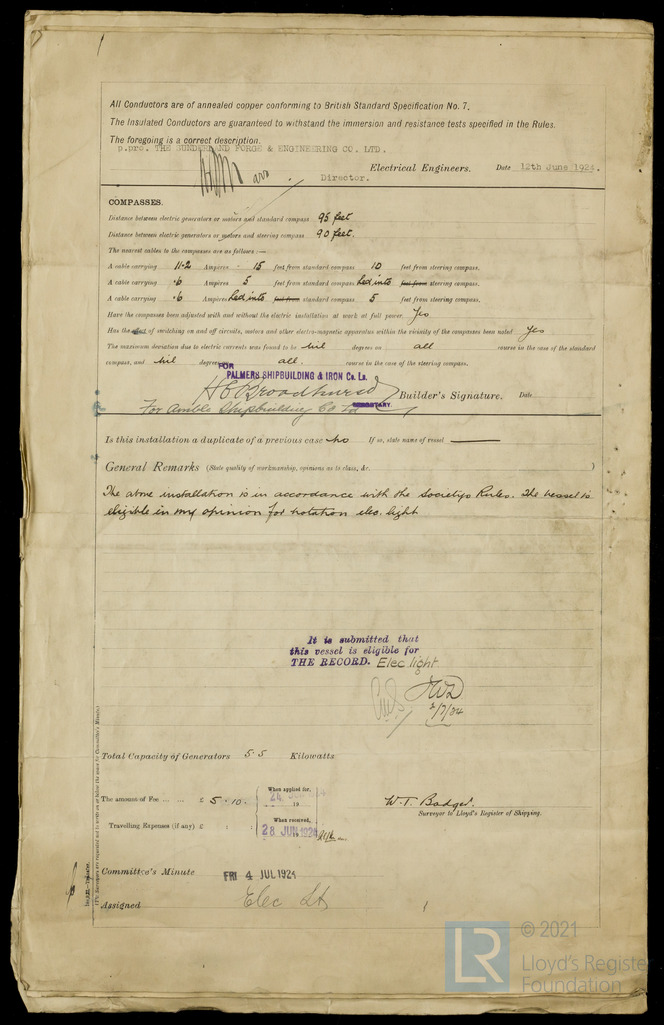 All Conductors are of annealed copper conforming to British Standard Specification No. 7.
The Insulated Conductors are guaranteed to withstand the immersion and resistance tests specified in the Rules.
The foregoing is a correct description.
p.pro. THE SUNDERLAND FORGE & ENGINEERING CO. LTD.
Electrical Engineers. Date 12th June 1924.
Director.
COMPASSES.
Distance between electric generators or motors and standard compass 95 feet
Distance between electric generators or motors and steering compass 90 feet.
The nearest cables to the compasses are as follows:—
A cable carrying 11.2 Ampères 15 feet from standard compass 10 feet from steering compass.
A cable carrying .6 Ampères 5 feet from standard compass led into feet from steering compass.
A cable carrying .6 Ampères led into feet from standard compass 5 feet from steering compass.
Have the compasses been adjusted with and without the electric installation at work at full power. Yes
Has the effect of switching on and off circuits, motors and other electro-magnetic apparatus within the vicinity of the compasses been noted Yes
The maximum deviation due to electric currents was found to be nil degrees on all course in the case of the standard
compass, and nil degrees on all. course in the case of the steering compass.
FOR
PALMERS SHIPBUILDING & IRON Co. Ld.
H C Broadhurst Builder's Signature. Date
SECRETARY.
For Amble Shipbuilding Co Ltd
Is this installation a duplicate of a previous case no If so, state name of vessel
General Remarks (State quality of workmanship, opinions as to class, &c. )
The above installation is in accordance with the Societys Rules. The vessel is
eligible in my opinion for notation elec. light
It is submitted that
this vessel is eligible for
THE RECORD. Elec light
2/7/24
Total Capacity of Generators 5.5 Kilowatts
The amount of Fee ... ... £ 5 : 10 .
When applied for,
24 19
Travelling Expenses (if any) £ : :
When received,
28 JUN 1924
W. T. Badger.
Surveyor to Lloyd's Register of Shipping.
Committee's Minute FRI 4 JUL 1924
Assigned Elec Lt
LR
© 2021
Lloyd's Register
Foundation